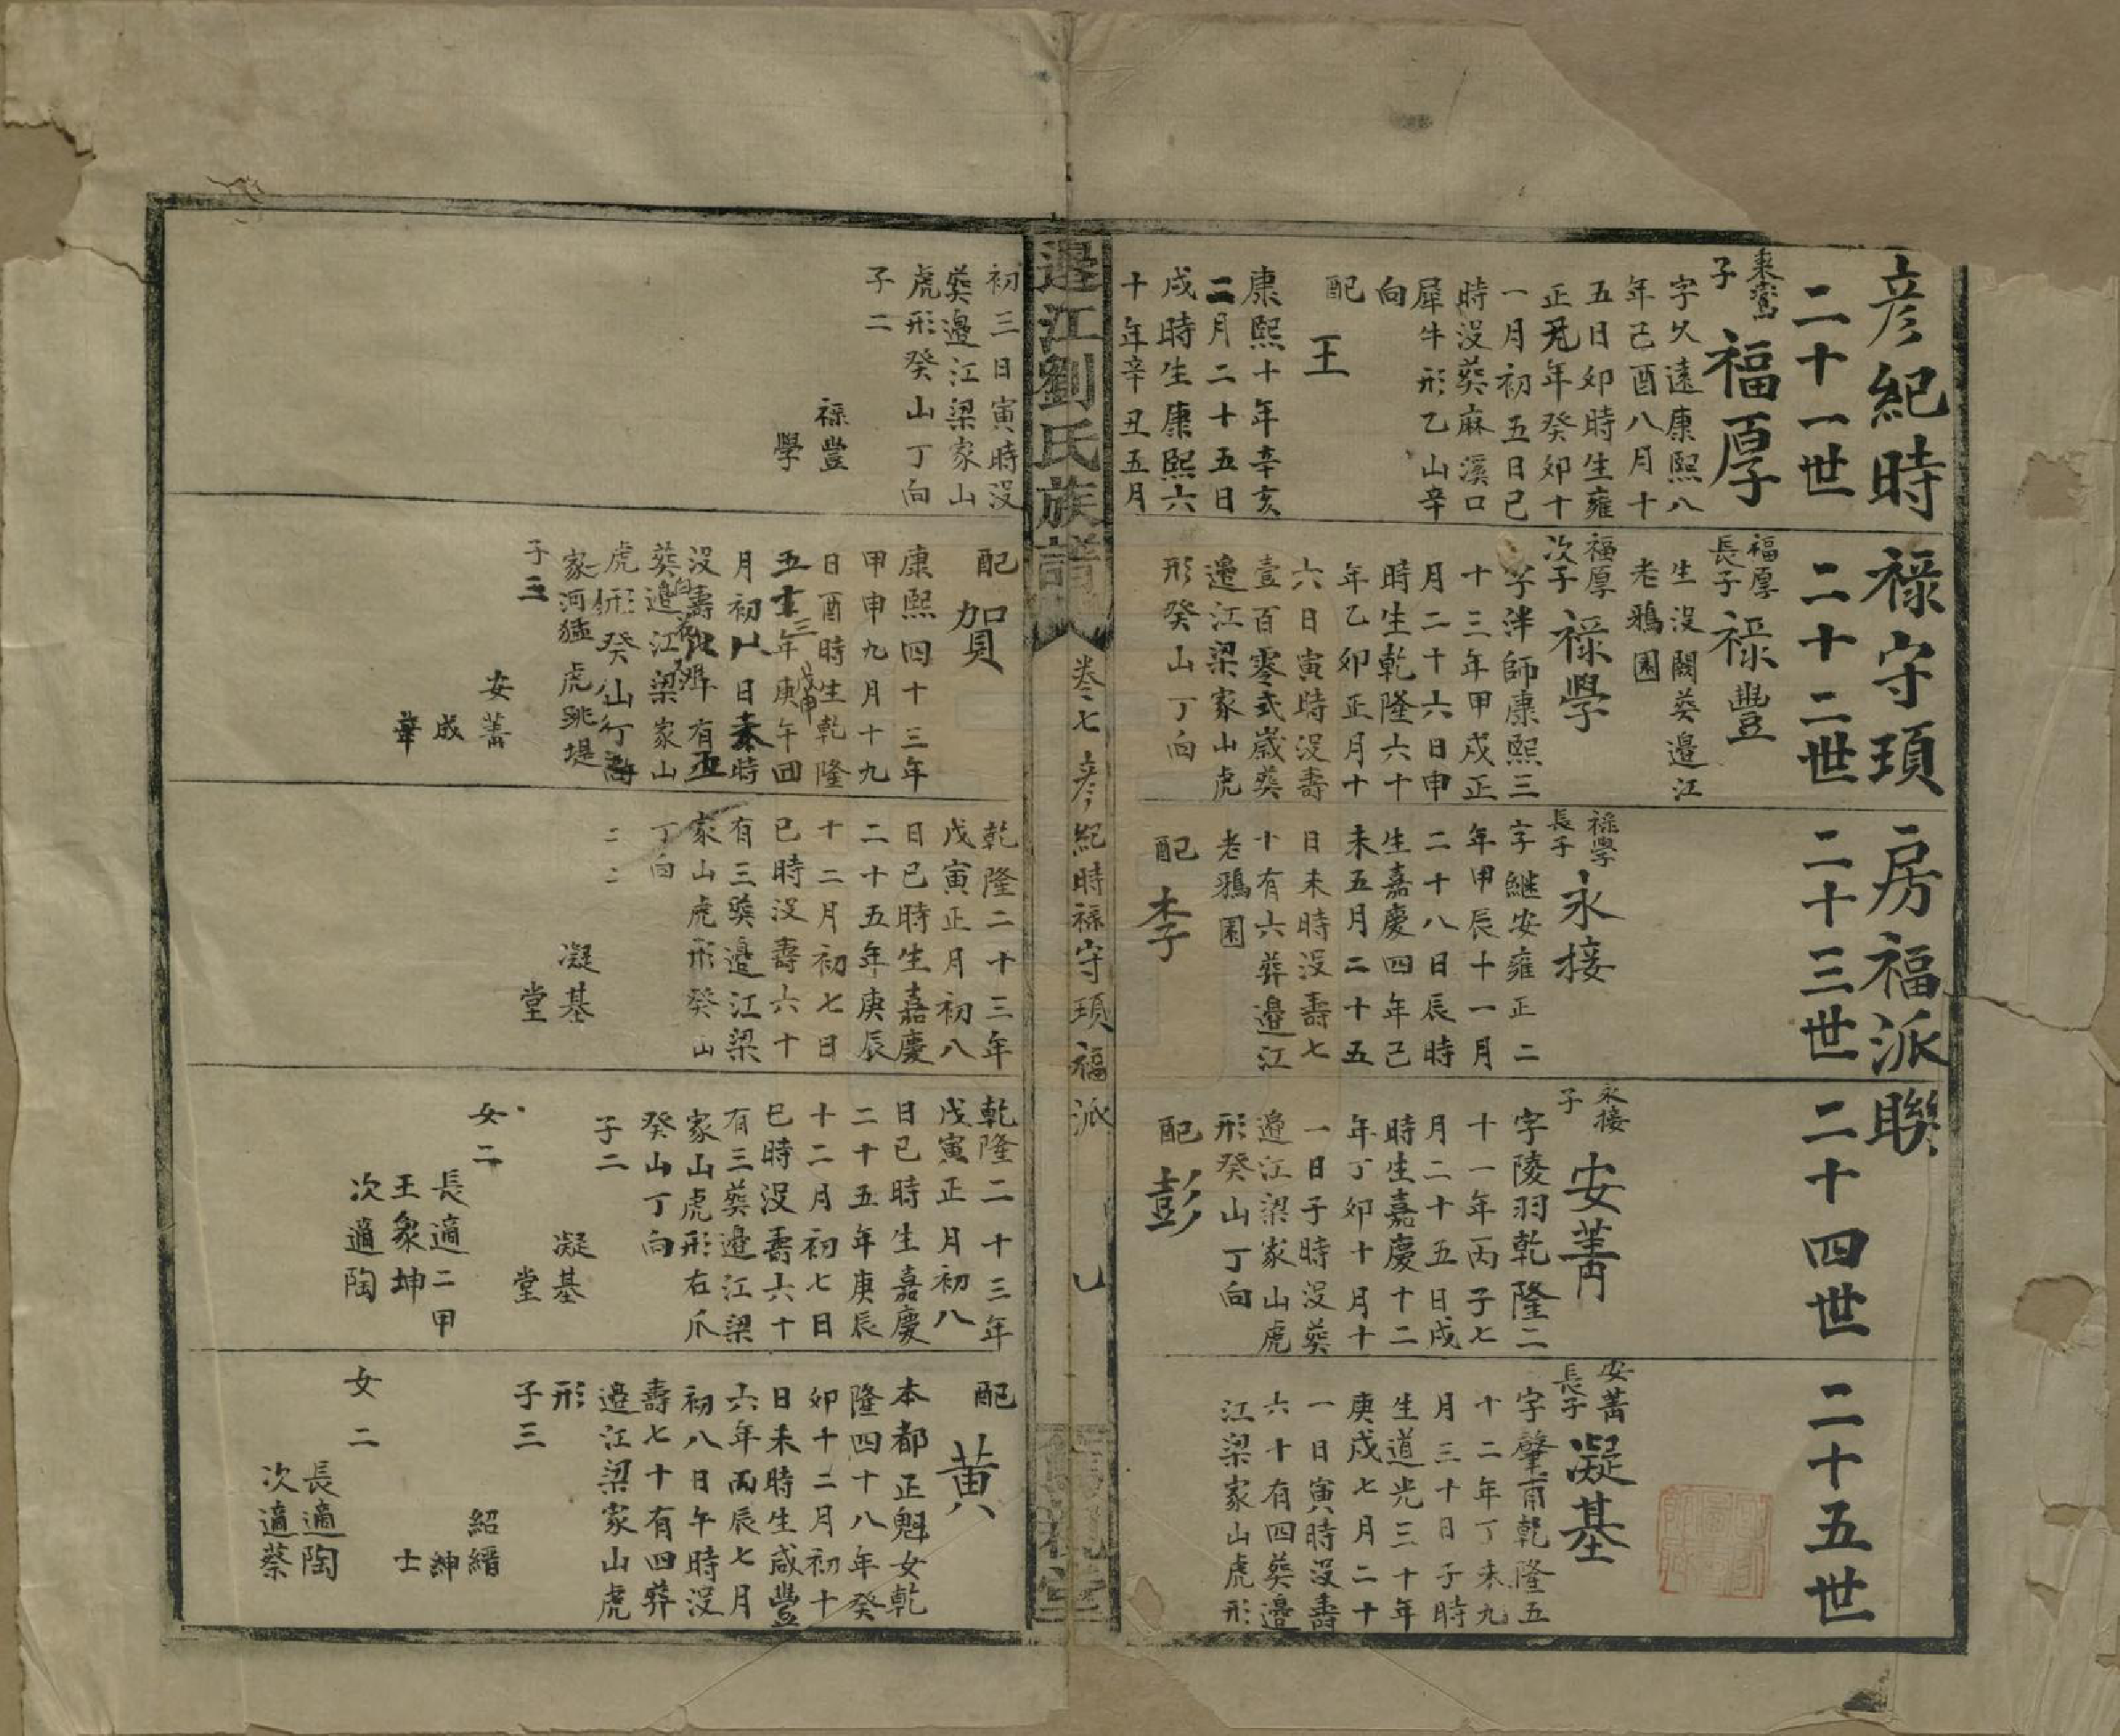 彦紀時祿守頊房福派聯
二十一世
二十二世
二十三世
二十四世
二十五世
子
福厚
字久遠康熙八
年己酉八月十
五日卯時生雍
正元年癸卯十
一月初五日巳
時没葬麻溪口
犀牛形乙山辛
向
配
王
康熙十年辛亥
二月二十五日
戌時生康熙六
十年辛丑五月
初三日寅時没
葵邉江梁家山
虎形癸山丁向
子二
祿豐
學
福厚
長子
祿豐
生没闕葵邉江
老鴉園
福厚
次子
祿學
字泮師康熙三
十三年甲戌正
月二十六日申
時生乾隆六十
年乙卯正月十
六日寅時没壽
壹百零弍歲葵
邉江梁家山虎
形癸山丁向
配
賀
康熙四十三年
甲申九月十九
日酉時生乾隆
年庚午四
月初八日未時
没壽
葵邉江梁家山
虎形癸山
家河猛虎跳堤
子三
安菁
成
華
祿學
長子
永接
字継安雍正二
年甲辰十一月
二十八日辰時
生嘉慶四年己
未五月二十五
日未時没壽七
十有六葬邉江
老鴉園
配
李
乾隆二十三年
戊寅正月初八
日巳時生嘉慶
二十五年庚辰
十二月初七日
巳時没壽六十
有三葵邉江梁
家山虎形癸山
丁向
凝基
堂
永接
子
安菁
字陵羽乾隆二
十一年丙子七
月二十五日戌
時生嘉慶十二
年丁卯十月十
一日子時没葵
邉江梁家山虎
形癸山丁向
配
彭
乾隆二十三年
戊寅正月初八
日巳時生嘉慶
二十五年庚辰
十二月初七日
巳時没壽六十
有三葵邉江梁
家山虎形右爪
癸山丁向
子二
凝基
堂
女二
長適二甲
王衆坤
次適陶
安菁
長子
凝基
字肇甫乾隆五
十二年丁未九
月三十日子時
生道光三十年
庚戌七月二十
一日寅時没壽
六十有四葵邉
江梁家山虎形
配
黄
本都正魁女乾
隆四十八年癸
卯十二月初十
日未時生咸豐
六年丙辰七月
初八日午時没
壽七十有四葬
邉江梁家山虎
形
子三
紹縉
紳
士
女二
長適陶
次適蔡
邉江劉氏族譜
卷之七
彦紀時祿守頊福派